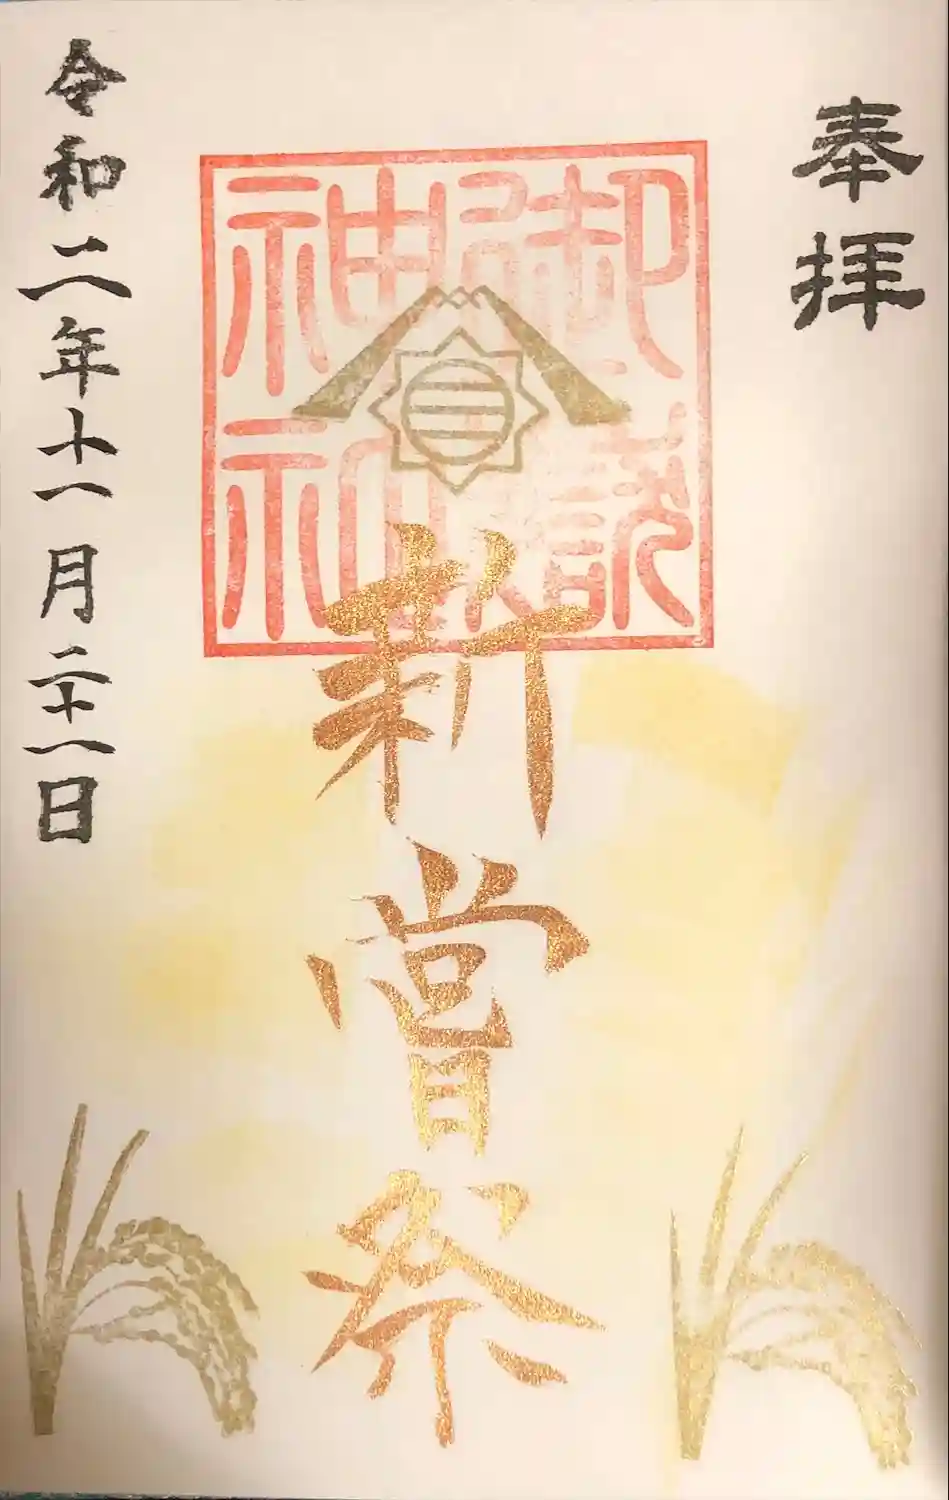 奉拝
御嶽
神社
新嘗祭
令和二年十一月二十一日